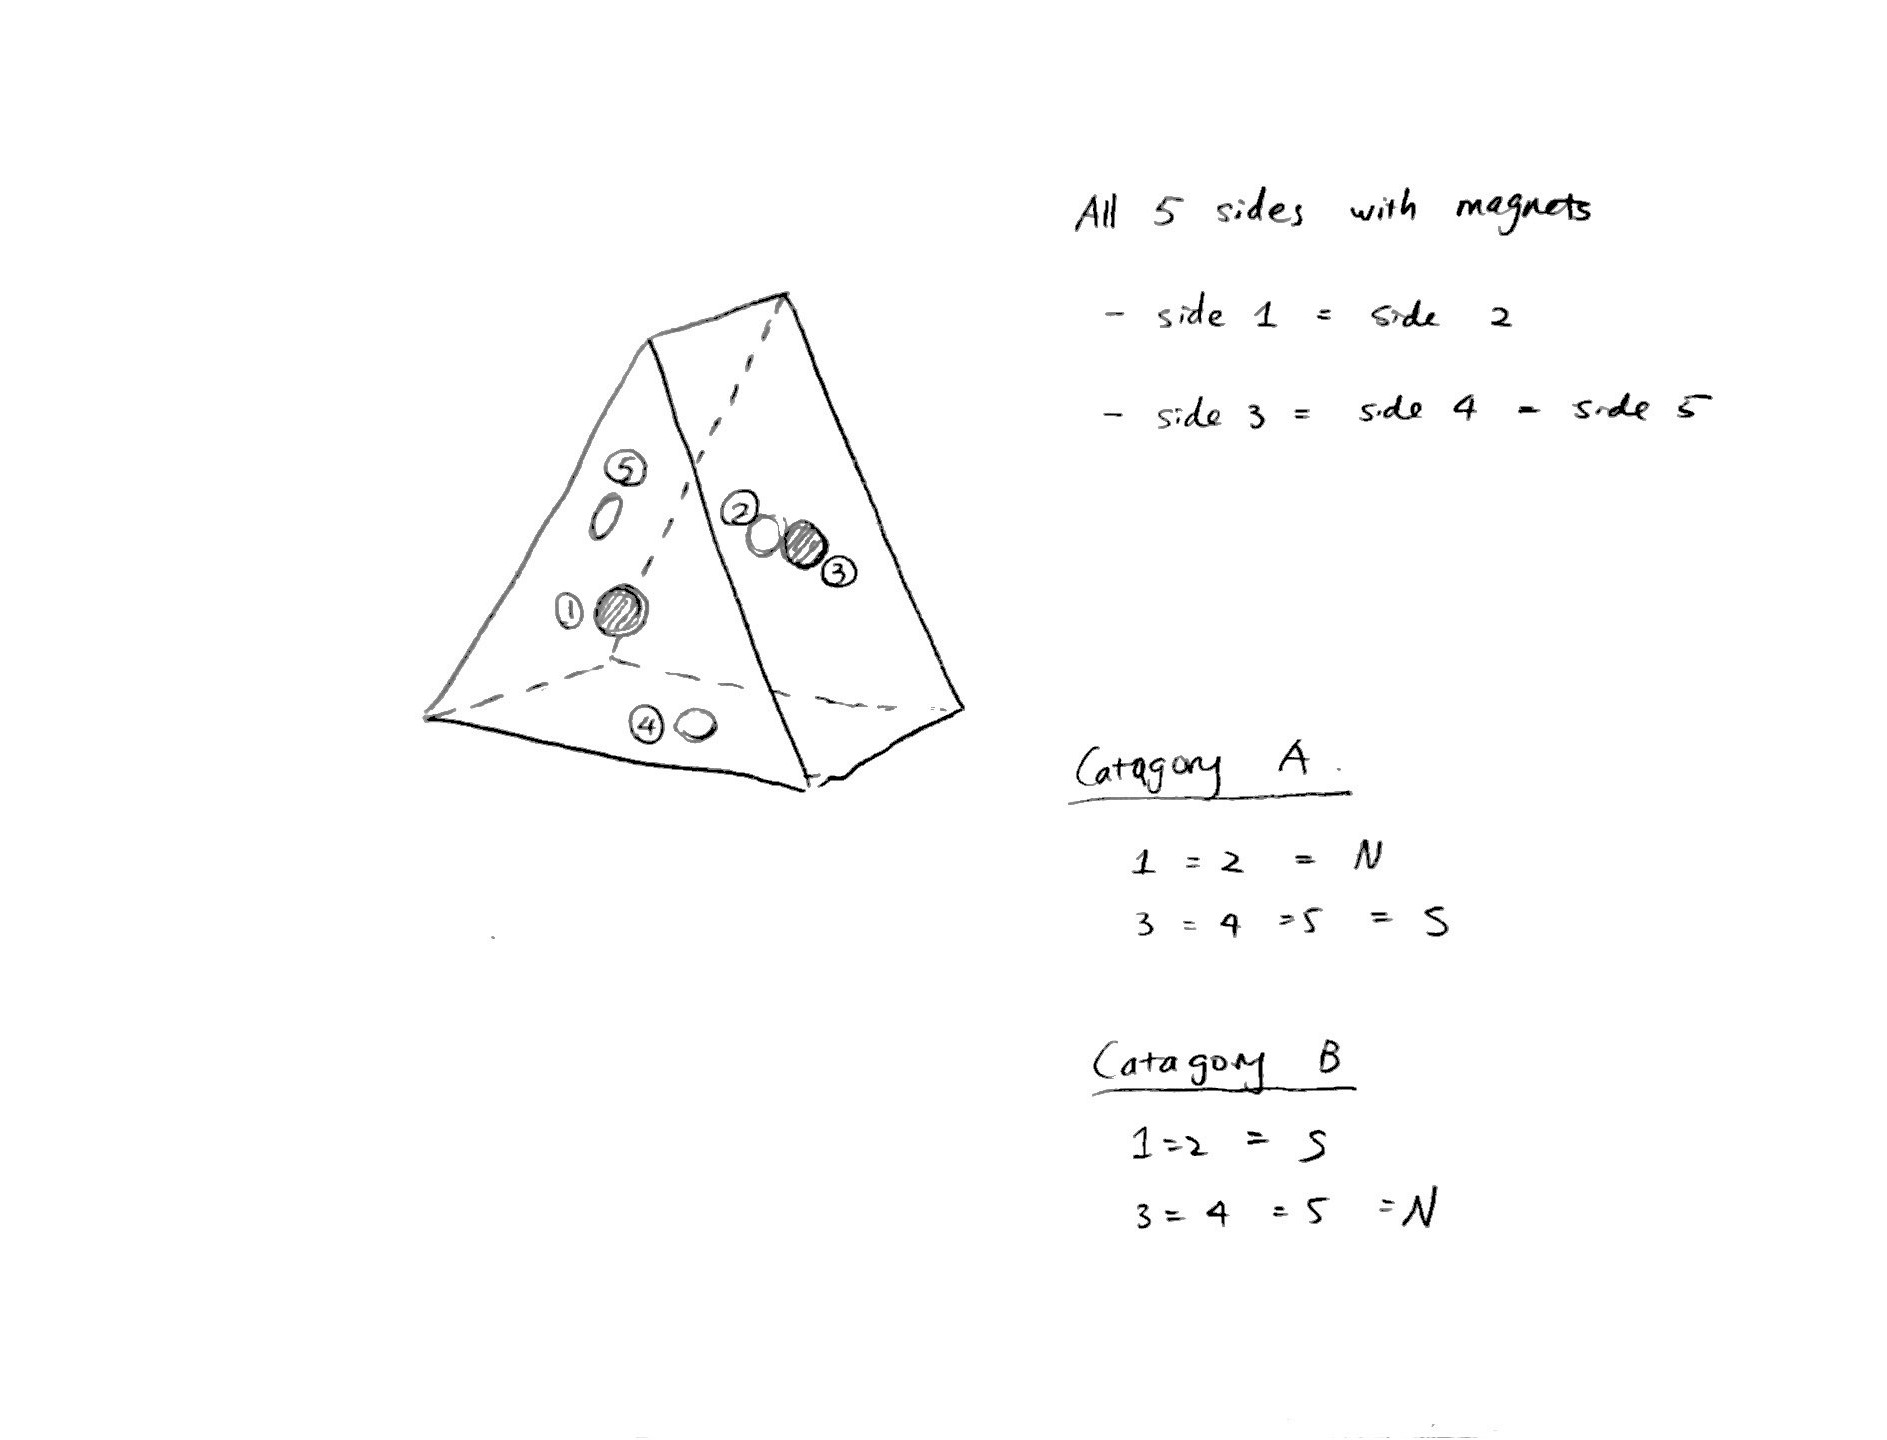 All 5 sides with magnets
- side 1 = side 2
- side 3 = side 4 = side 5
5
2
3
1
4
Catagory A
1 = 2 = N
3 = 4 = 5 = S
Catagory B
1 = 2 = S
3 = 4 = 5 = N